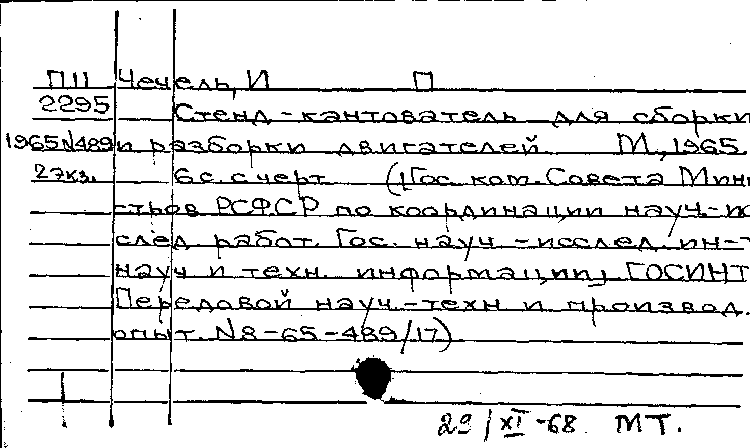 П11 Чечель, И П
2295 Стенд-кантователь для сборки
1965N489 и разборки двигателей М., 1965.
2 экз. 6 с. с черт. ([Гос. ком. Совета Мини
стров РСФСР по координации науч-ис
след работ. Гос. науч-исслед. ин-т
науч и техн. информации] ГОСИНТ
Передовой науч.-техн и производ.
опыт. N8-65-489/17).
29/XI-68 МТ.